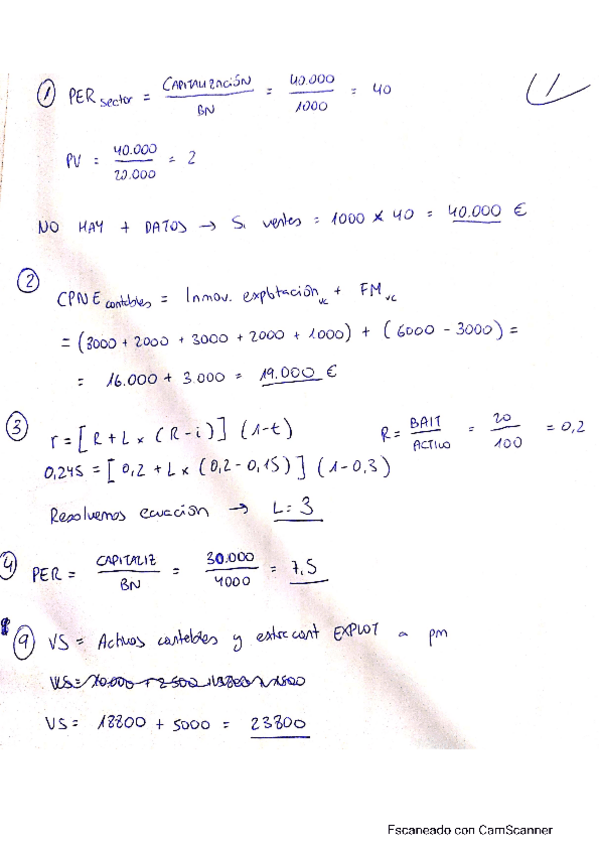 ① PER sector = CAPITALIZACIÓN / BN = 40.000 / 1000 = 40
PV = 40.000 / 20.000 = 2
NO HAY + DATOS → Si ventes = 1000 x 40 = 40.000 €
② CPNE contables = Inmov. explotación vc + FM vc
= (8000 + 2000 + 3000 + 2000 + 1000) + (6000 - 3000) =
= 16.000 + 3.000 = 19.000 €
③ r = [R + L x (R - i)] (1-t) R = BAIT / ACTIVO = 20 / 100 = 0,2
0,245 = [0,2 + L x (0,2 - 0,15)] (1 - 0,3)
Resolvemos ecuación → L = 3
④ PER = CAPITALIZ / BN = 30.000 / 4000 = 7,5
⑨ VS = Activos contables y extracont EXPLOT a pm
VS = 18800 + 5000 = 23800
Escaneado con CamScanner